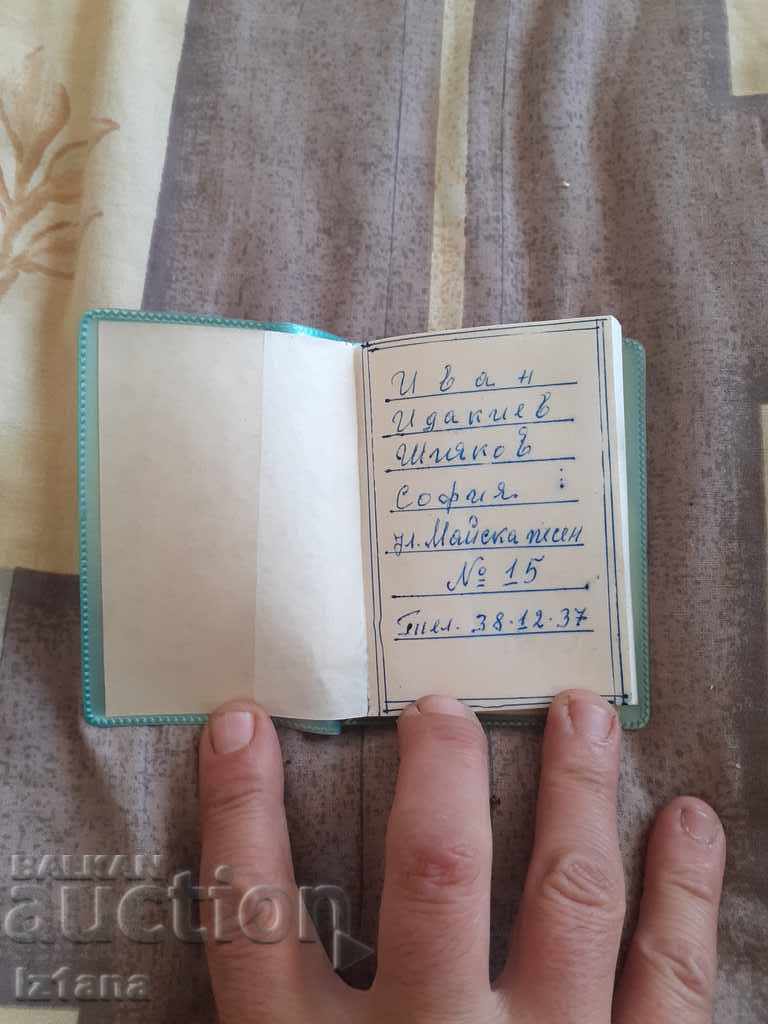 Иван
Идакиев
Шияков
София:
ул. Майска песен
№ 15
Тел. 38.12.37
BALKAN
auction
Iz1ana